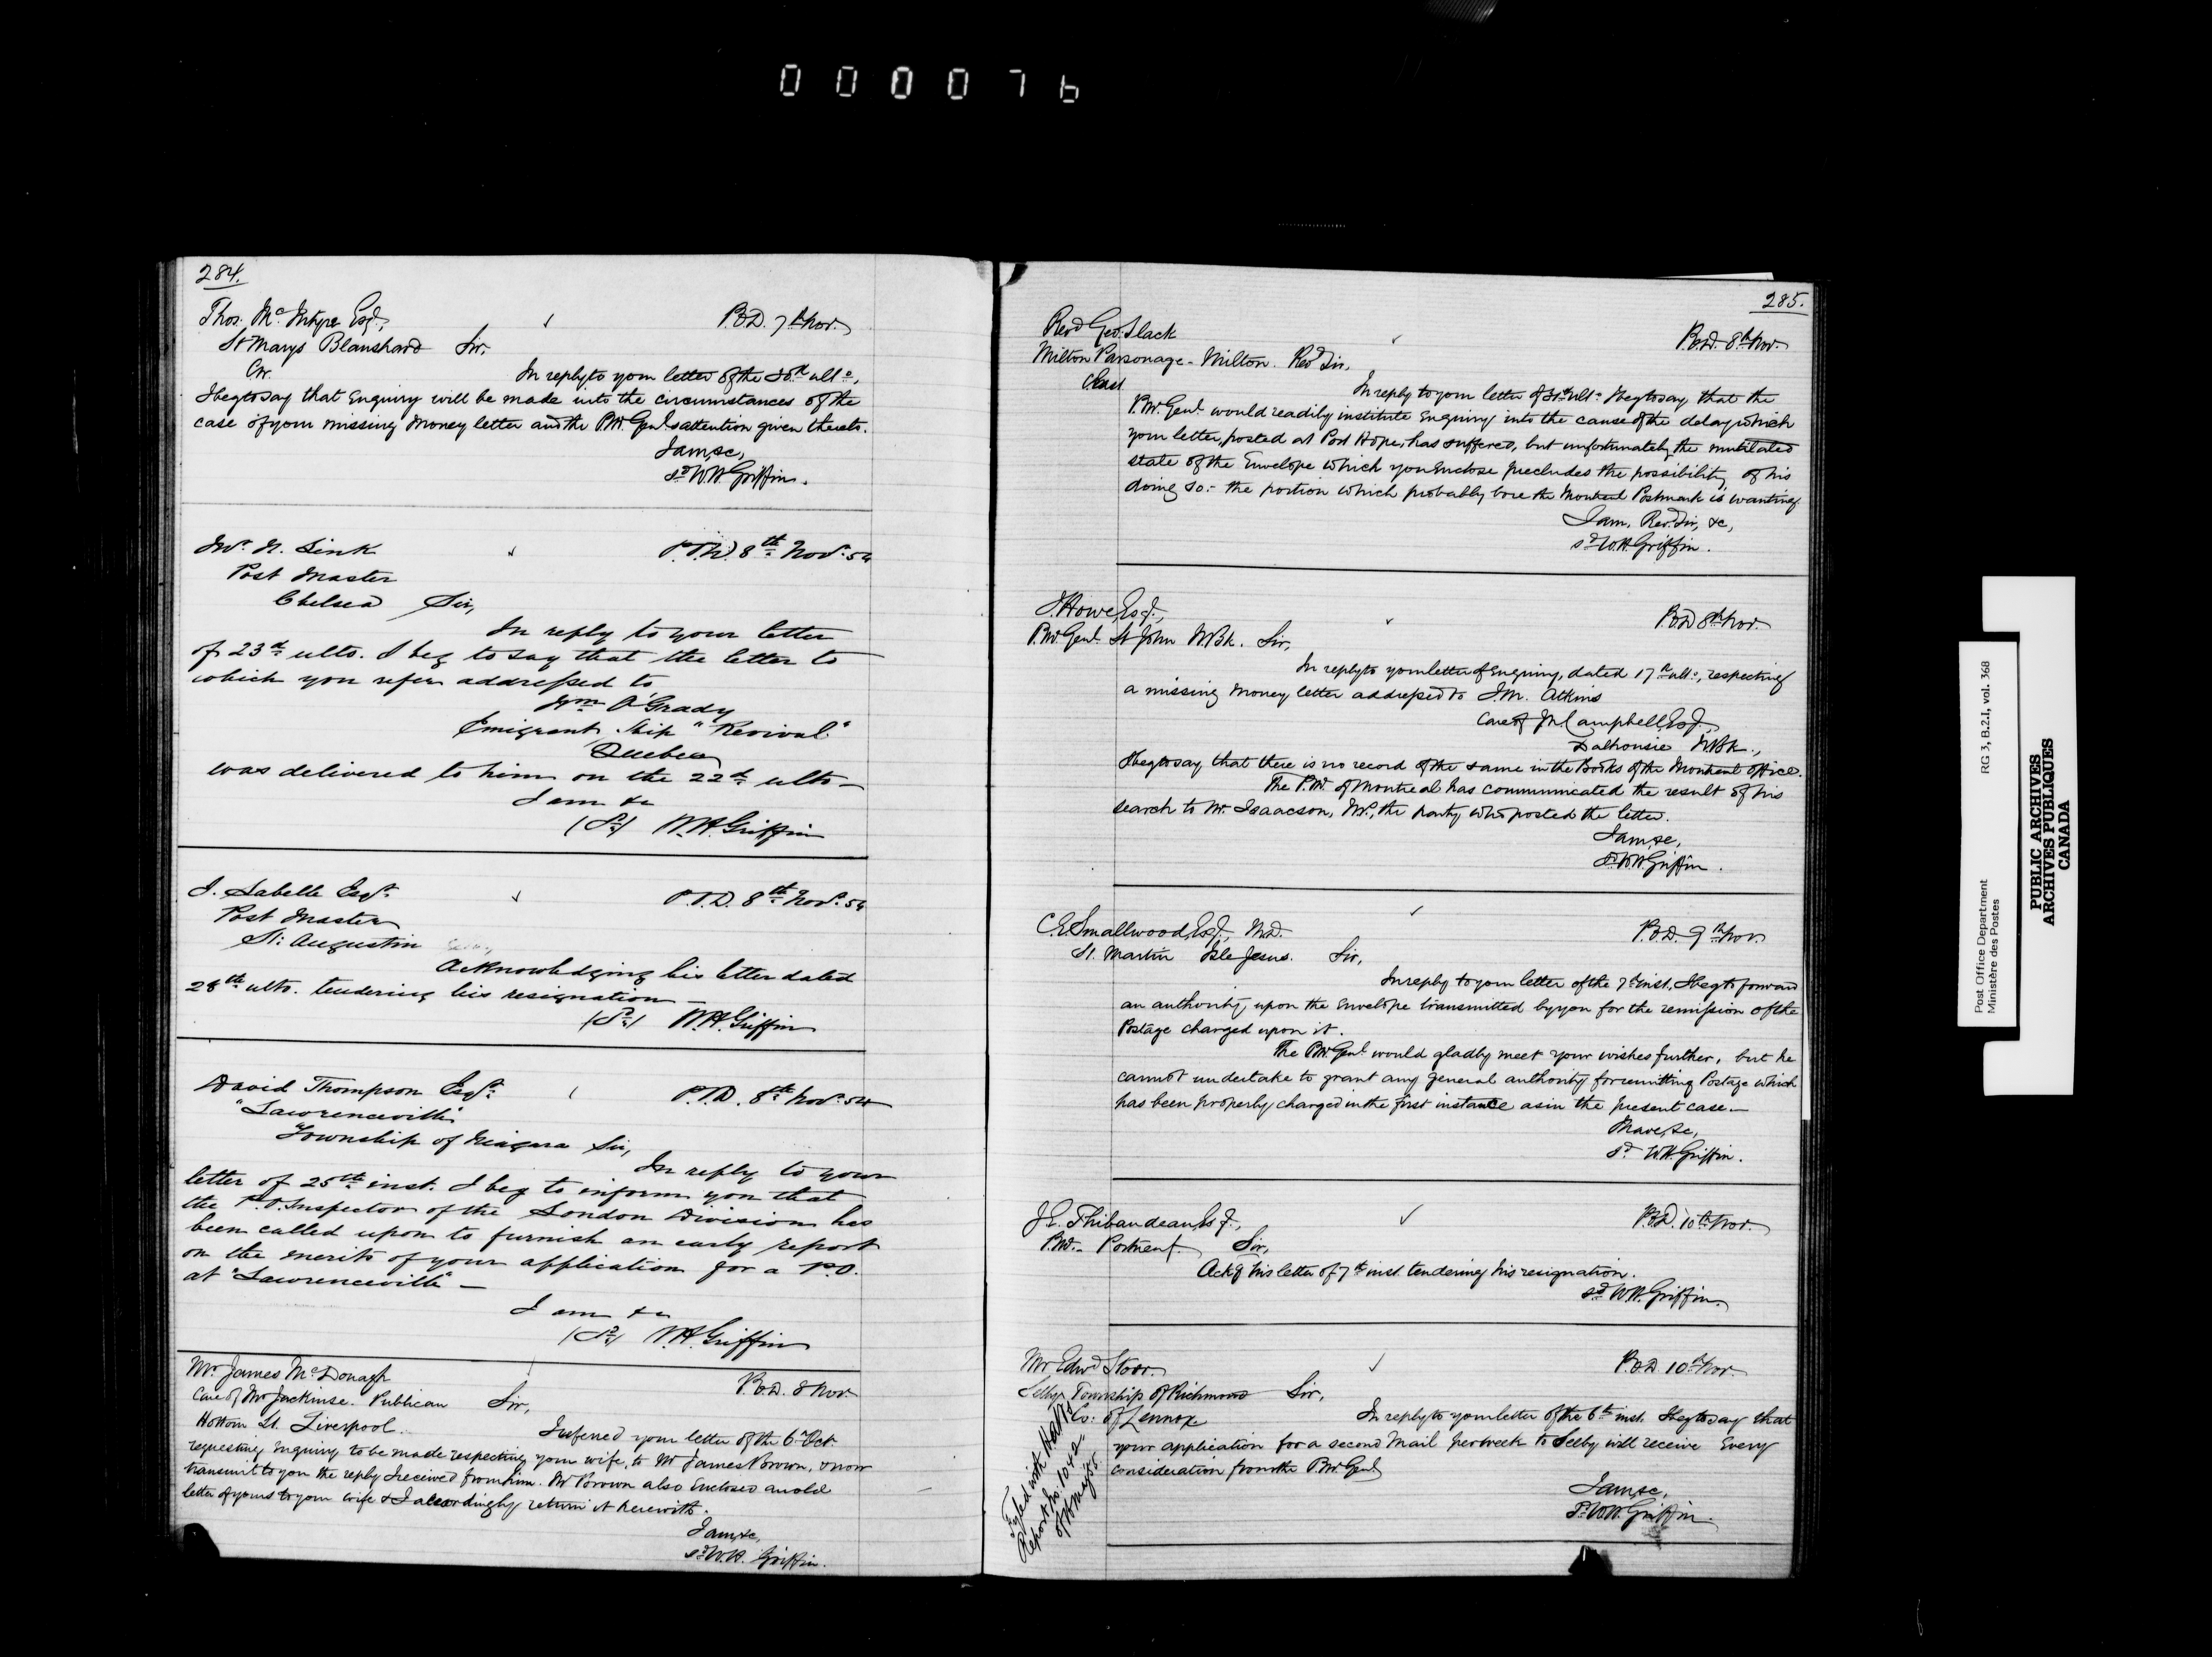 000076
284.
Thos. McIntyre Esqr.,
P.O.D. 7th Nov.
St Marys Blanshard Sir,
C.W.
In reply to your letter of the 30th ulto.,
I beg to say that Enquiry will be made into the circumstances of the
case of your missing money letter and the P.M. Genl.s attention given thereto.
I am, &c,
sd W.H. Griffin.
Mr. N. Sink
P.O.D. 8th Novr. 54
Post Master
Chelsea Sir,
In reply to your letter
of 23rd ulto. I beg to say that the letter to
which you refer addressed to
Wm O'Grady
Emigrant Ship "Revival"
Quebec
was delivered to him on the 22d ulto —
I am &c
(Sd) W.H. Griffin
J. Labelle Esqr.
P.O.D. 8th Novr. 54
Post Master
St: Augustin
Acknowledging his letter dated
28th ulto. tendering his resignation —
(Sd) W.H. Griffin
David Thompson Esqr.
P.O.D. 8th Novr. 54
"Lawrenceville"
Township of Niagara Sir,
In reply to your
letter of 25th inst. I beg to inform you that
the P.O. Inspector of the London Division has
been called upon to furnish an early report
on the merits of your application for a P.O.
at "Lawrenceville" —
I am &c
(Sd) W.H. Griffin
Mr. James McDonagh
P.O.D. 8 Nov
Care of Mr Publican Sir,
St. Liverpool.
I referred your letter of the 6th Oct.
requesting Enquiry to be made respecting your wife, to Mr James Brown, & now
transmit to you the reply I received from him. Mr Brown also Enclosed an old
letter of yours to your wife & I accordingly return it herewith.
I am, &c,
sd W.H. Griffin.
285.
Revd Geo. Slack
P.O.D. 8th Nov.
Milton Parsonage - Milton. Revd Sir,
C. East
In reply to your letter of 31st ulto. I beg to say that the
P.M. Genl. would readily institute Enquiry into the cause of the delay which
your letter, posted at Port Hope, has suffered, but unfortunately the mutilated
state of the Envelope which you Enclose precludes the possibility of his
doing so:- the portion which probably bore the Montreal Postmark is wanting.
I am, Rev. Sir, &c,
sd W.H. Griffin.
J. Howe, Esqr.,
P.O.D 8th Nov.
P.M. Genl. St John N.Bk. Sir,
In reply to your letter of Enquiry, dated 17th ulto., respecting
a missing money letter addressed to J.M. Atkins
Care of Campbell, Esqr.,
Dalhousie N.Bk.,
I beg to say that there is no record of the same in the Books of the Montreal office.
The P.M. of Montreal has communicated the result of his
search to Mr. Isaacson, N.P., the party who posted the letter.
I am, &c,
sd W.H. Griffin.
C. Smallwood, Esqr., M.D.
P.O.D. 9th Nov.
St. Martin Isle Jesus. Sir,
In reply to your letter of the 7th inst, I beg to forward
an authority upon the Envelope transmitted by you for the remission of the
Postage charged upon it.
The P.M. Genl. would gladly meet your wishes further, but he
cannot undertake to grant any general authority for remitting Postage which
has been properly charged in the first instance as in the present case. —
I have, &c,
sd W.H. Griffin.
J.E. Thibaudeau, Esqr.,
P.O.D. 10th Nov.
P.M. - Portneuf. Sir,
Ackg his letter of 7th inst. tendering his resignation.
sd W.H. Griffin.
Mr Edwd Storr.
P.O.D. 10th Nov.
Selby, Township of Richmond Sir,
Co: of Lennox
In reply to your letter of the 6th inst. I beg to say that
your application for a second Mail per week to Selby will receive Every
consideration from the P.M. Genl.
I am, &c,
sd W.H. Griffin.
Fyled with
Report No. 1042
of
Post Office Department
Ministère des Postes
RG 3, B.2.I, vol. 368
PUBLIC ARCHIVES
ARCHIVES PUBLIQUES
CANADA